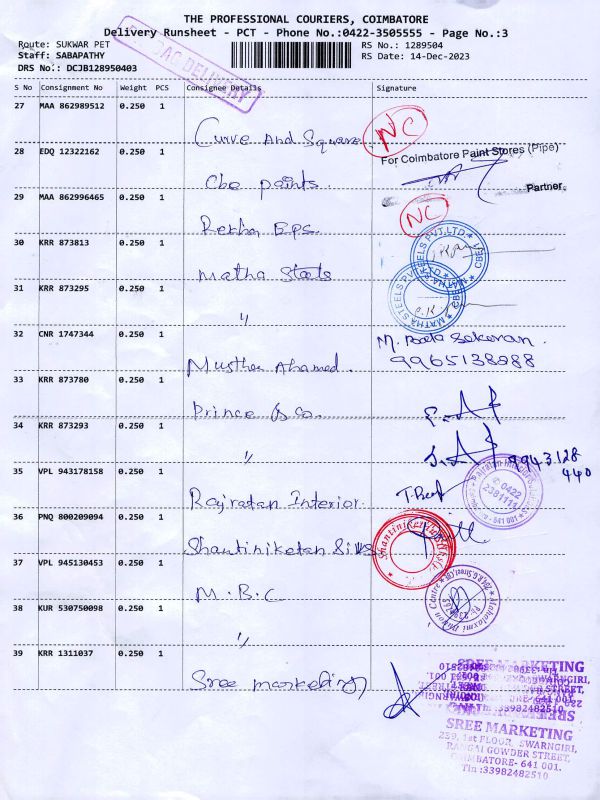 THE PROFESSIONAL COURIERS, COIMBATORE
Delivery Runsheet - PCT - Phone No.:0422-3505555 - Page No.:3
Route: SUKWAR PET
RS No.: 1289504
Staff: SABAPATHY
RS Date: 14-Dec-2023
DRS No.: DCJB128950403
DELIVERY
S No Consignment No Weight PCS Consignee Details Signature
27 MAA 862989512 0.250 1
Curve And Square NC
28 EDQ 12322162 0.250 1
For Coimbatore Paint Stores (Pipe)
Cbe paints.
Partner.
29 MAA 862996465 0.250 1
Rekha Eps. NC
30 KRR 873813 0.250 1
Matha Steels
MATHA STEELS PVT.LTD.
31 KRR 873295 0.250 1
〃
MATHA STEELS PVT.LTD. CBE
32 CNR 1747344 0.250 1
M.
Musthu Ahamed. 9965138088
33 KRR 873780 0.250 1
Prince & Co.
34 KRR 873293 0.250 1
〃
9943128
440
35 VPL 943178158 0.250 1
Rajratan Interior.
0422
2381111
36 PNQ 800209094 0.250 1
Shantiniketan Silks
37 VPL 945130453 0.250 1
M.B.C
38 KUR 530750098 0.250 1
〃
Mahalaxmi Button Centre
39 KRR 1311037 0.250 1
Sree marketing
SREE MARKETING
SREE MARKETING
259, 1st FLOOR, SWARNGIRI,
RANGAI GOWDER STREET,
COIMBATORE- 641 001.
Tin :33982482510